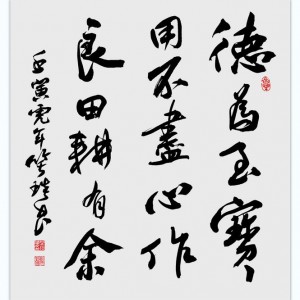 德為至寶
用不盡心作
良田耕有余
壬寅虎年